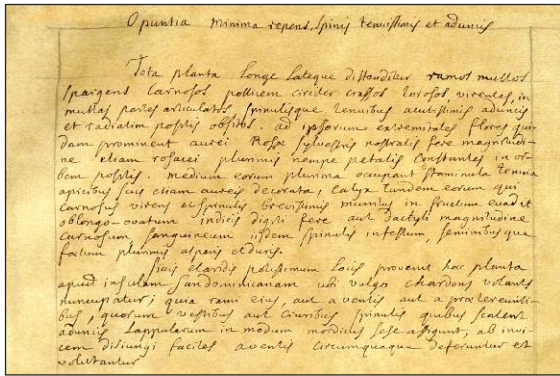 Opuntia minima repens, spinis tenuissimis et aduncis
Tota planta longe lateque distenditur ramos multos
spargens carnosos pollicem circiter crassos torosos virentes, in
multas partes articulatos, spinulisque tenuibus acutissimis aduncis
et radiatim positis obsitos. ad ipsorum extremitates flores qui-
dam prominent aurei Rosæ sylvestris nostratis fere magnitudi-
ne etiam rosacei plurimis nempe petalis constantes in or-
bem positis. medium eorum plurima occupant staminula tenuia
apicibus suis etiam aureis decorata; calyx tandem eorum qui
carnosus virens et spinulis brevissimis munitus in fructum evadit
oblongo-ovatum indicis digiti fere aut dactyli magnitudine
carnosum sanguineum iisdem spinulis infestum, seminibusque
fœtum plurimis asperis et duris.
Siccis et aridis potissimum locis provenit hæc planta
apud insulam Sandominicanam ubi vulgo chardons volants
nuncupatur; quia rami eius, aut a ventis aut a prætereunti-
bus, quorum vestibus aut cruribus spinulis quibus scatent
aduncis lappularum in modum mordicus sese affigunt, ab invi-
cem disiungi faciles a ventis circumquaque deferuntur et
volutantur